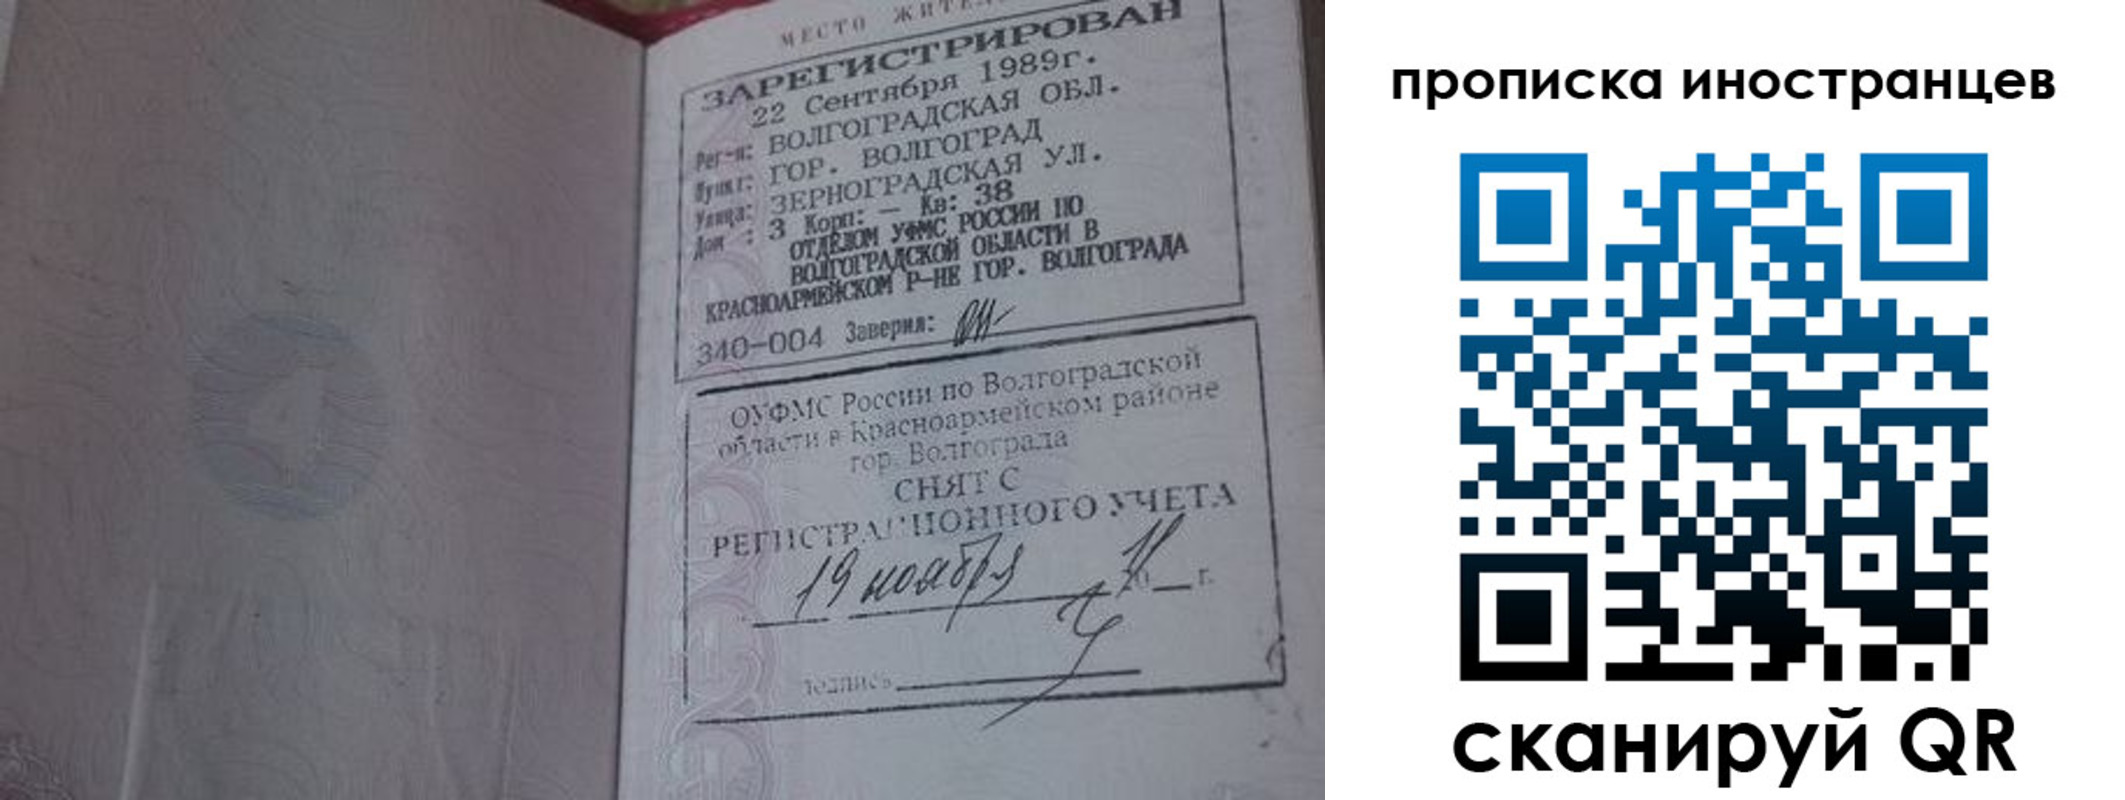 МЕСТО ЖИТЕЛ
ЗАРЕГИСТРИРОВАН
22 Сентября 1989г.
Рег-н: ВОЛГОГРАДСКАЯ ОБЛ.
Пункт: ГОР. ВОЛГОГРАД
Улица: ЗЕРНОГРАДСКАЯ УЛ.
Дом : 3 Корп: — Кв: 38
ОТДЕЛОМ УФМС РОССИИ ПО
ВОЛГОГРАДСКОЙ ОБЛАСТИ В
КРАСНОАРМЕЙСКОМ Р-НЕ ГОР. ВОЛГОГРАДА
340-004 Заверил:
ОУФМС России по Волгоградской
области в Красноармейском районе
гор. Волгограда
СНЯТ С
РЕГИСТРАЦИОННОГО УЧЕТА
19 ноября 20 г.
подпись
прописка иностранцев
сканируй QR